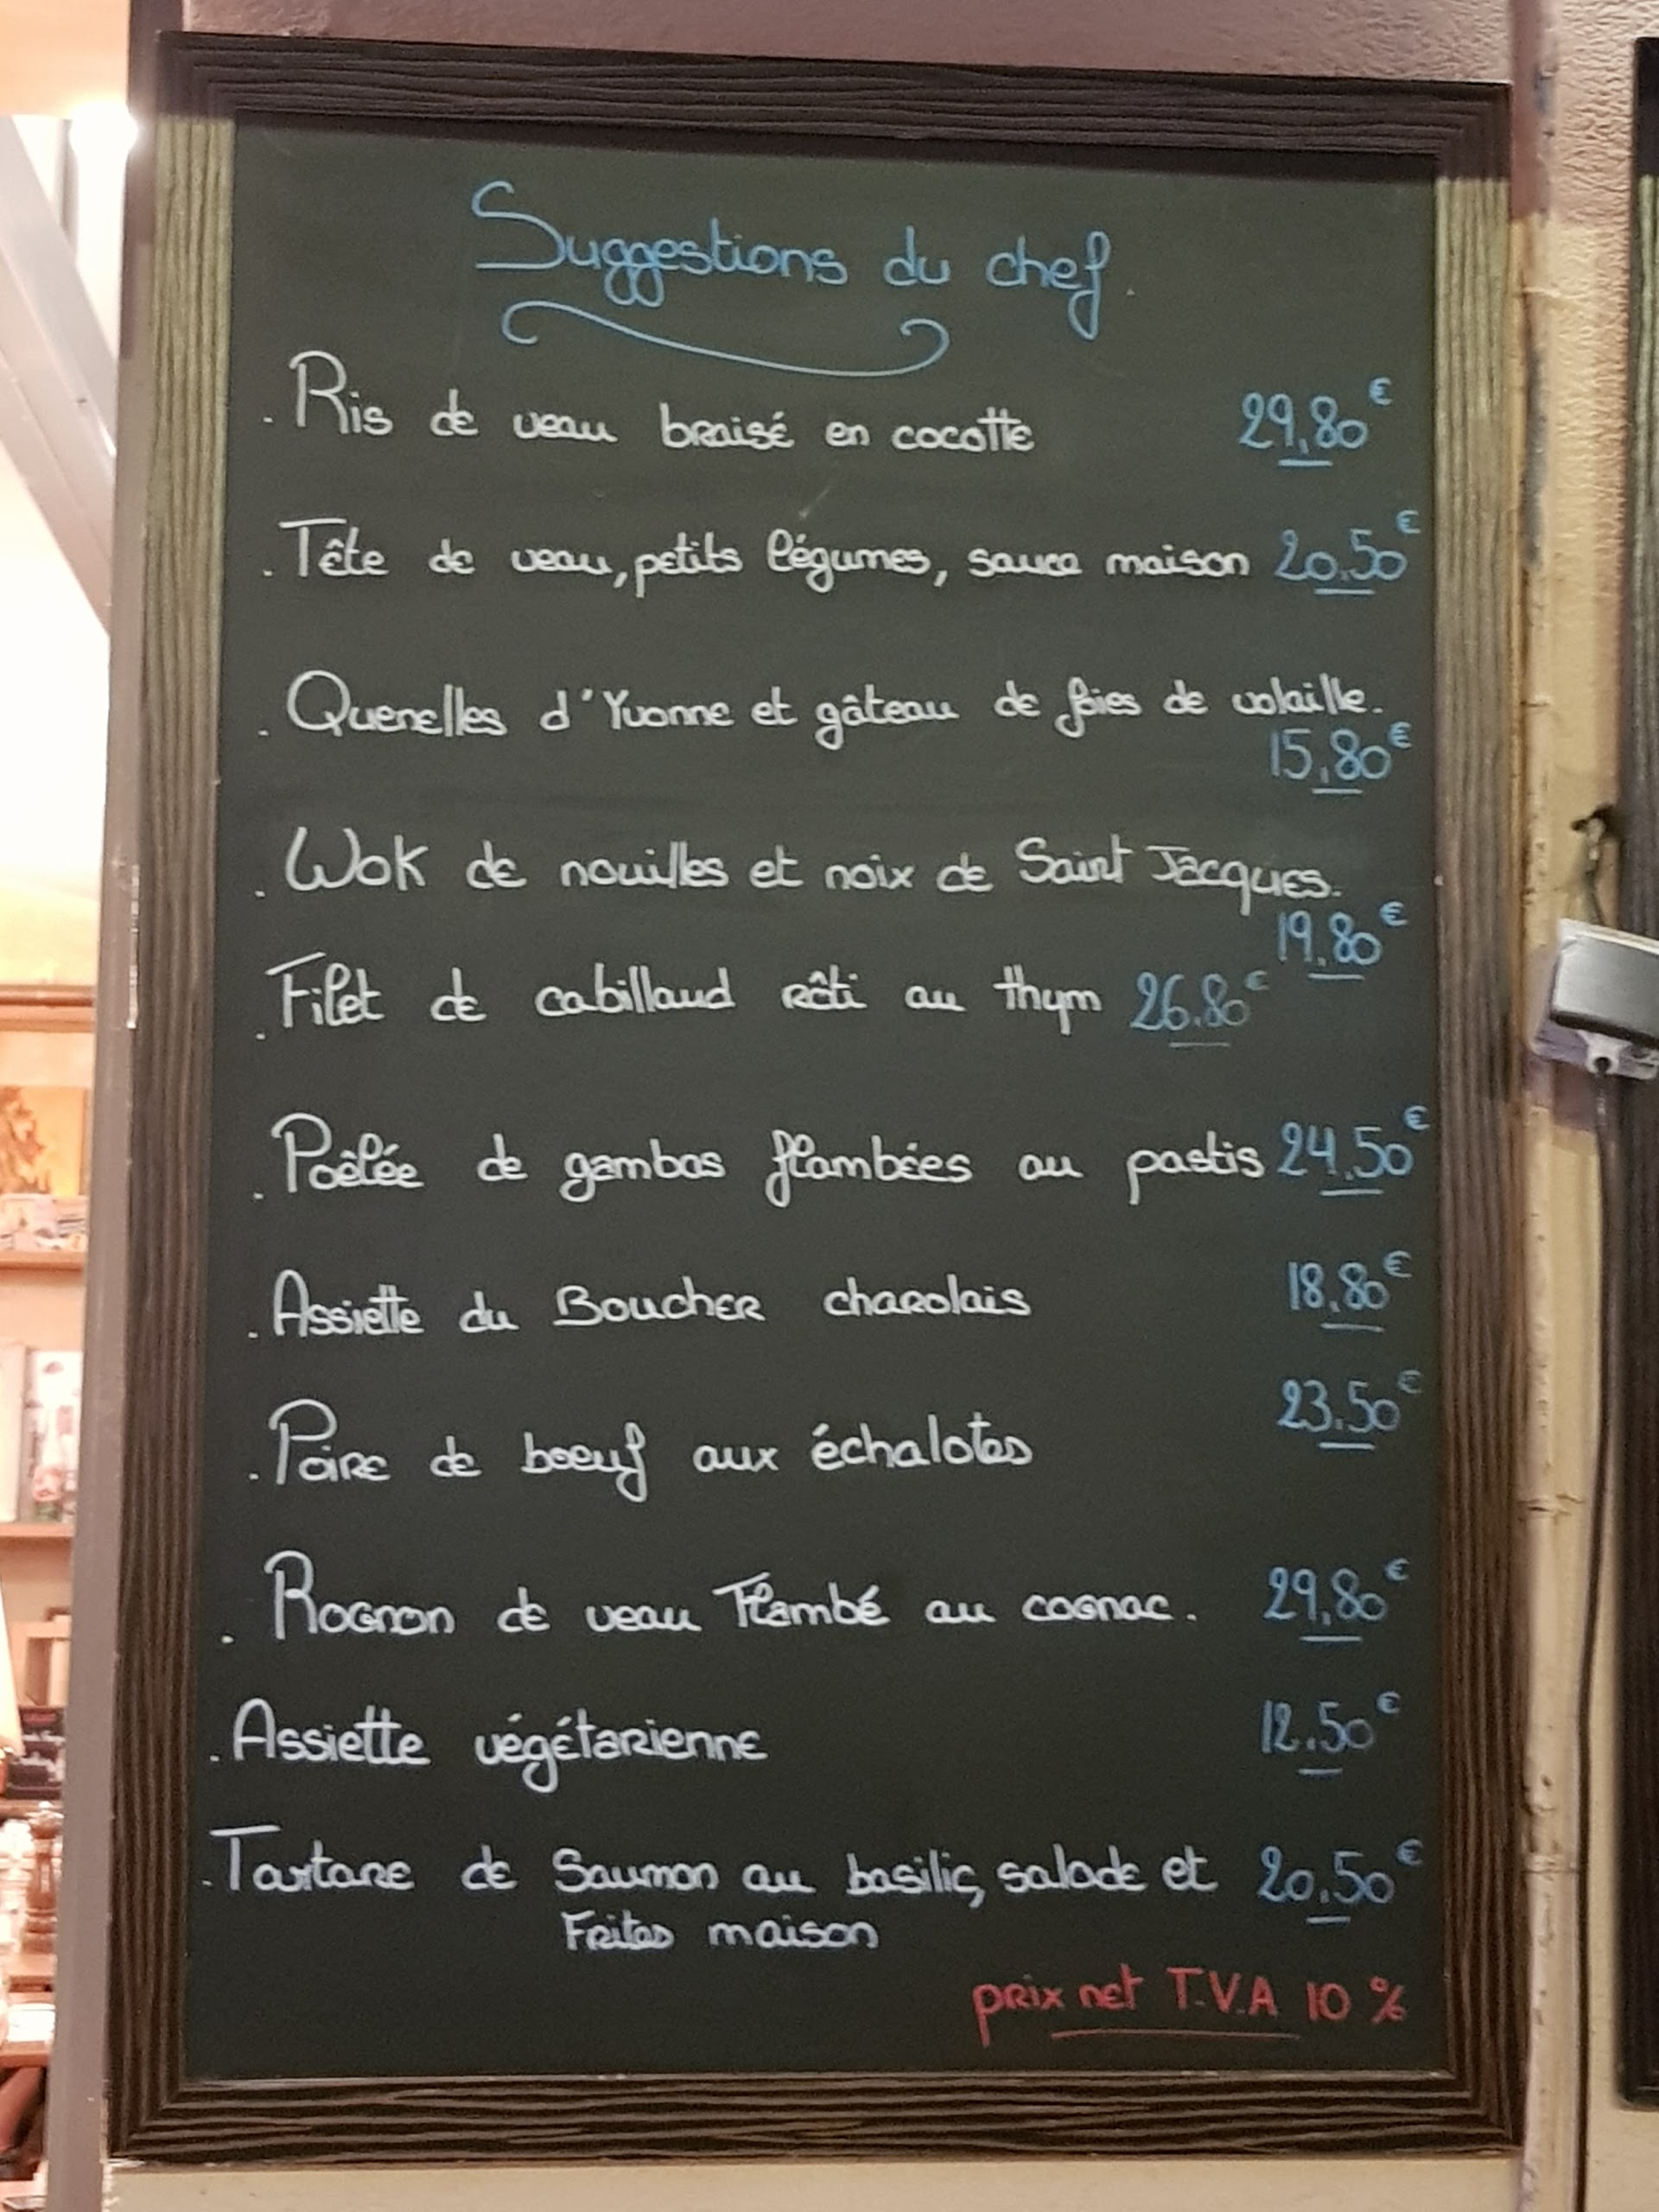 Suggestions du chef.
. Ris de veau braisé en cocotte 29,80€
. Tête de veau, petits légumes, sauce maison 20,50€
. Quenelles d'Yvonne et gâteau de foies de volaille.
15,80€
. Wok de nouilles et noix de Saint Jacques.
19,80€
. Filet de cabillaud rôti au thym 26,80€
. Poêlée de gambas flambées au pastis 24,50€
. Assiette du Boucher charolais 18,80€
. Poire de boeuf aux échalotes 23,50€
. Rognon de veau Flambé au cognac. 29,80€
. Assiette végétarienne 12,50€
. Tartare de Saumon au basilic, salade et 20,50€
Frites maison
prix net T.V.A 10 %